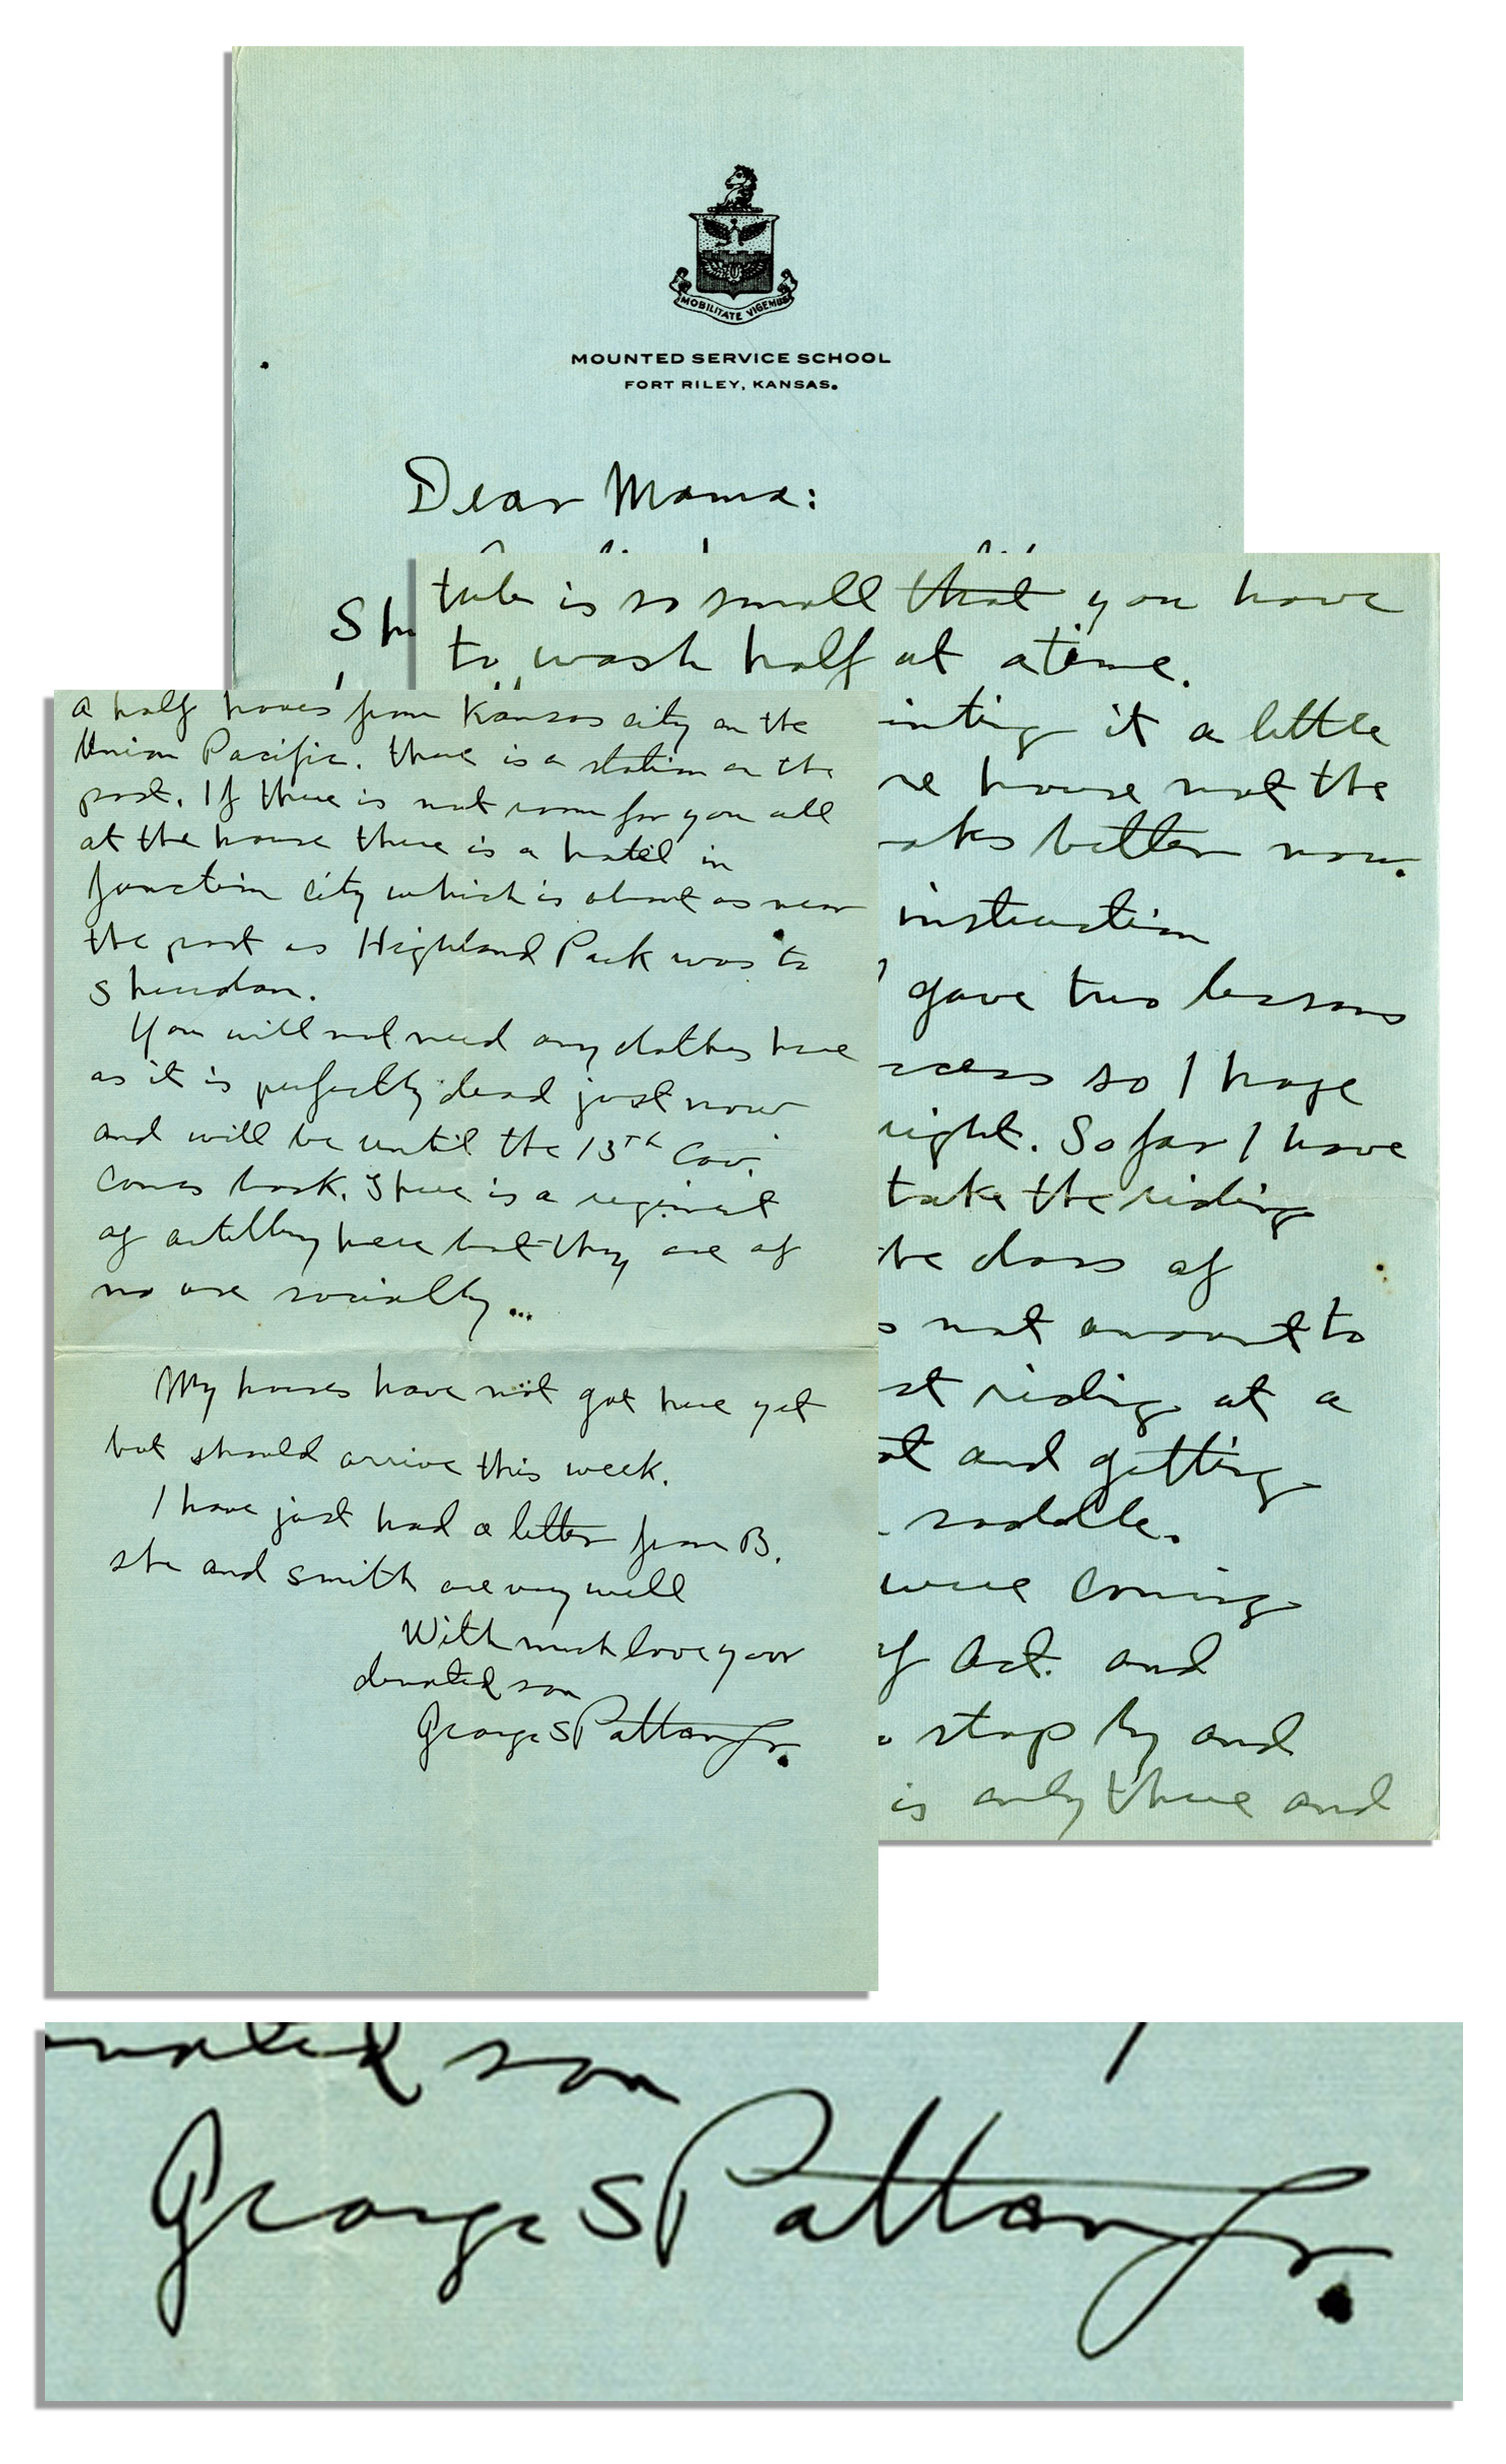 MOBILITATE VIGEMUS
MOUNTED SERVICE SCHOOL
FORT RILEY, KANSAS.
Dear Mama:
tub is so small that you have
to wash half at a time.
it a little
house not the
better now.
instruction
gave two lessons
so I hope
right. So far I have
take the riding
class of
not amount to
riding at a
and getting
saddle.
were coming
Oct. and
stop by and
is only three and
a half hours from Kansas city on the
Union Pacific. there is a station on the
post. If there is not room for you all
at the house there is a hotel in
Junction City which is about as near
the post as Highland Park was to
Sheridan.
You will not need any clothes here
as it is perfectly dead just now
and will be until the 13th Cav.
comes back. There is a regiment
of artillery here but they are of
no use socially...
My horses have not got here yet
but should arrive this week.
I have just had a letter from B.
she and Smith are very well
With much love your
devoted son
George S Patton Jr.
son
George S Patton Jr.